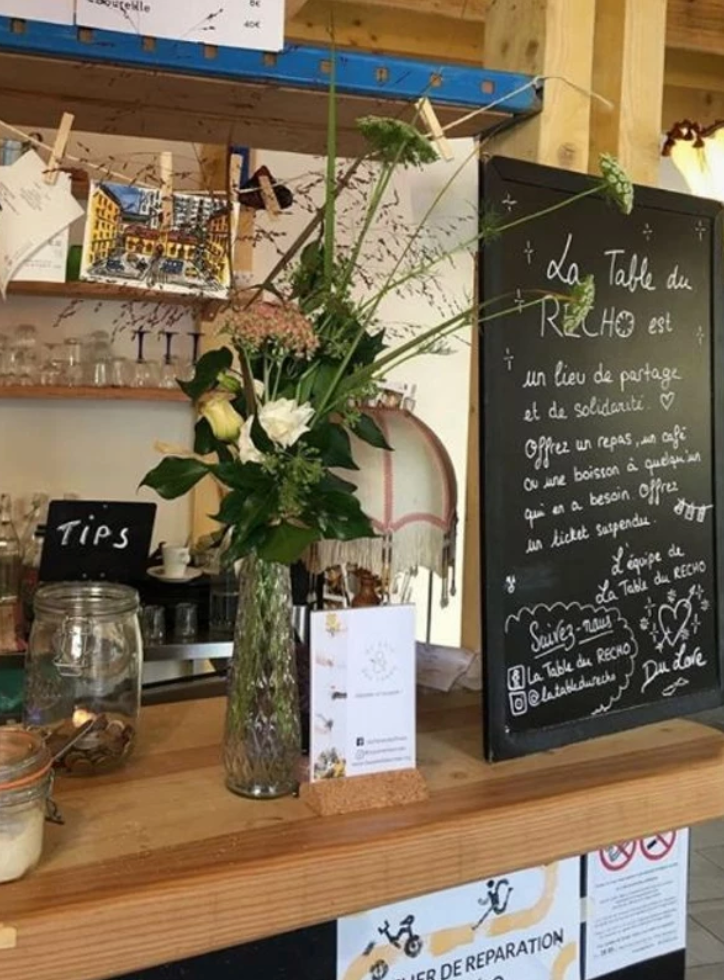 8€
40€
TIPS
La Table du
RECHO est
un lieu de partage
et de solidarité. ♡
Offrez un repas, un café
ou une boisson à quelqu'un
qui en a besoin. Offrez
un ticket suspendu.
L'équipe de
La Table du RECHO
Suivez-nous
La Table du RECHO
@latabledurecho
Du Love
LIER DE REPARATION